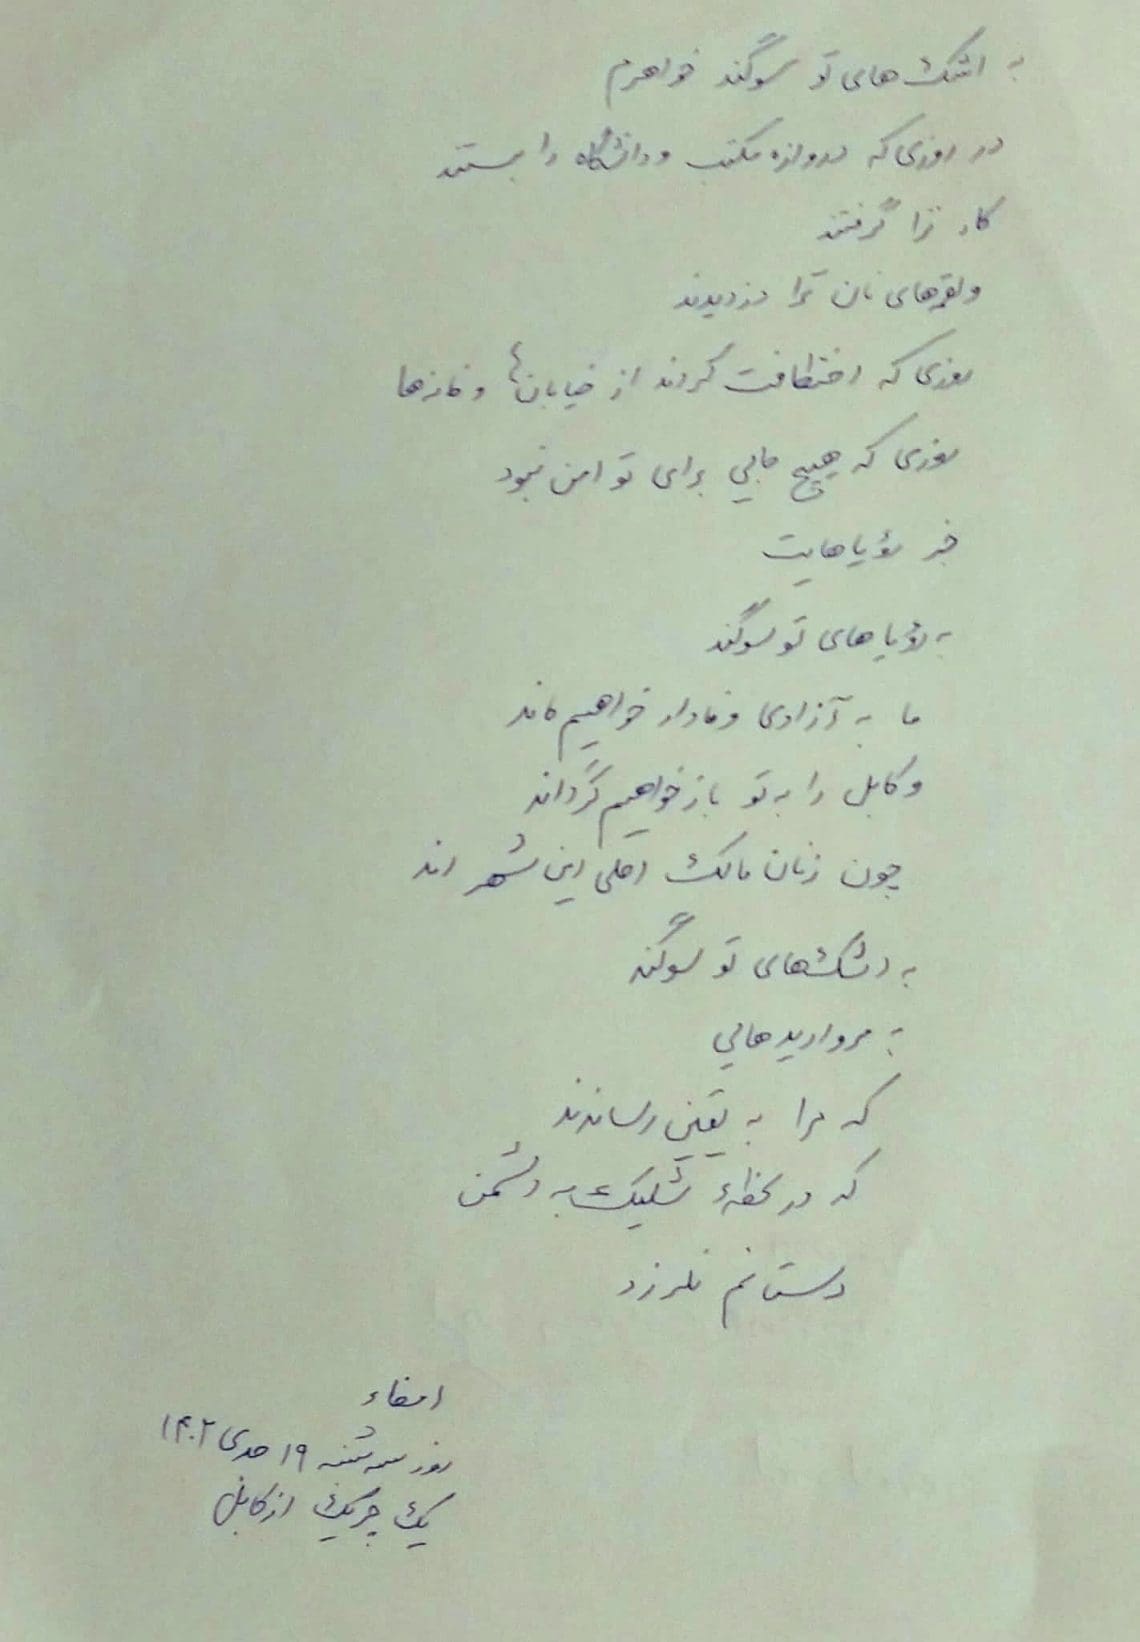 به اشک های تو سوگند خواهرم
در روزی که دروازه مکتب و دانشگاه را بستند
کار ترا گرفتند
و لقمه‌های نان ترا دزدیدند
روزی که اختطافت کردند از خیابان‌ها و خانه‌ها
روزی که هیچ جایی برای تو امن نبود
جز رؤیاهایت
به رؤیاهای تو سوگند
ما به آزادی وفادار خواهیم ماند
و کابل را به تو باز خواهیم گرداند
چون زنان مالک اصلی این شهر اند
به اشک‌های تو سوگند
به مرواریدهایی
که مرا به یقینی رساندند
که در لحظهٔ شلیک به دشمن
دستانم نلرزد
امضاء
روز سه شنبه ۱۹ جدی ۱۴۰۲
یک چریک از کابل